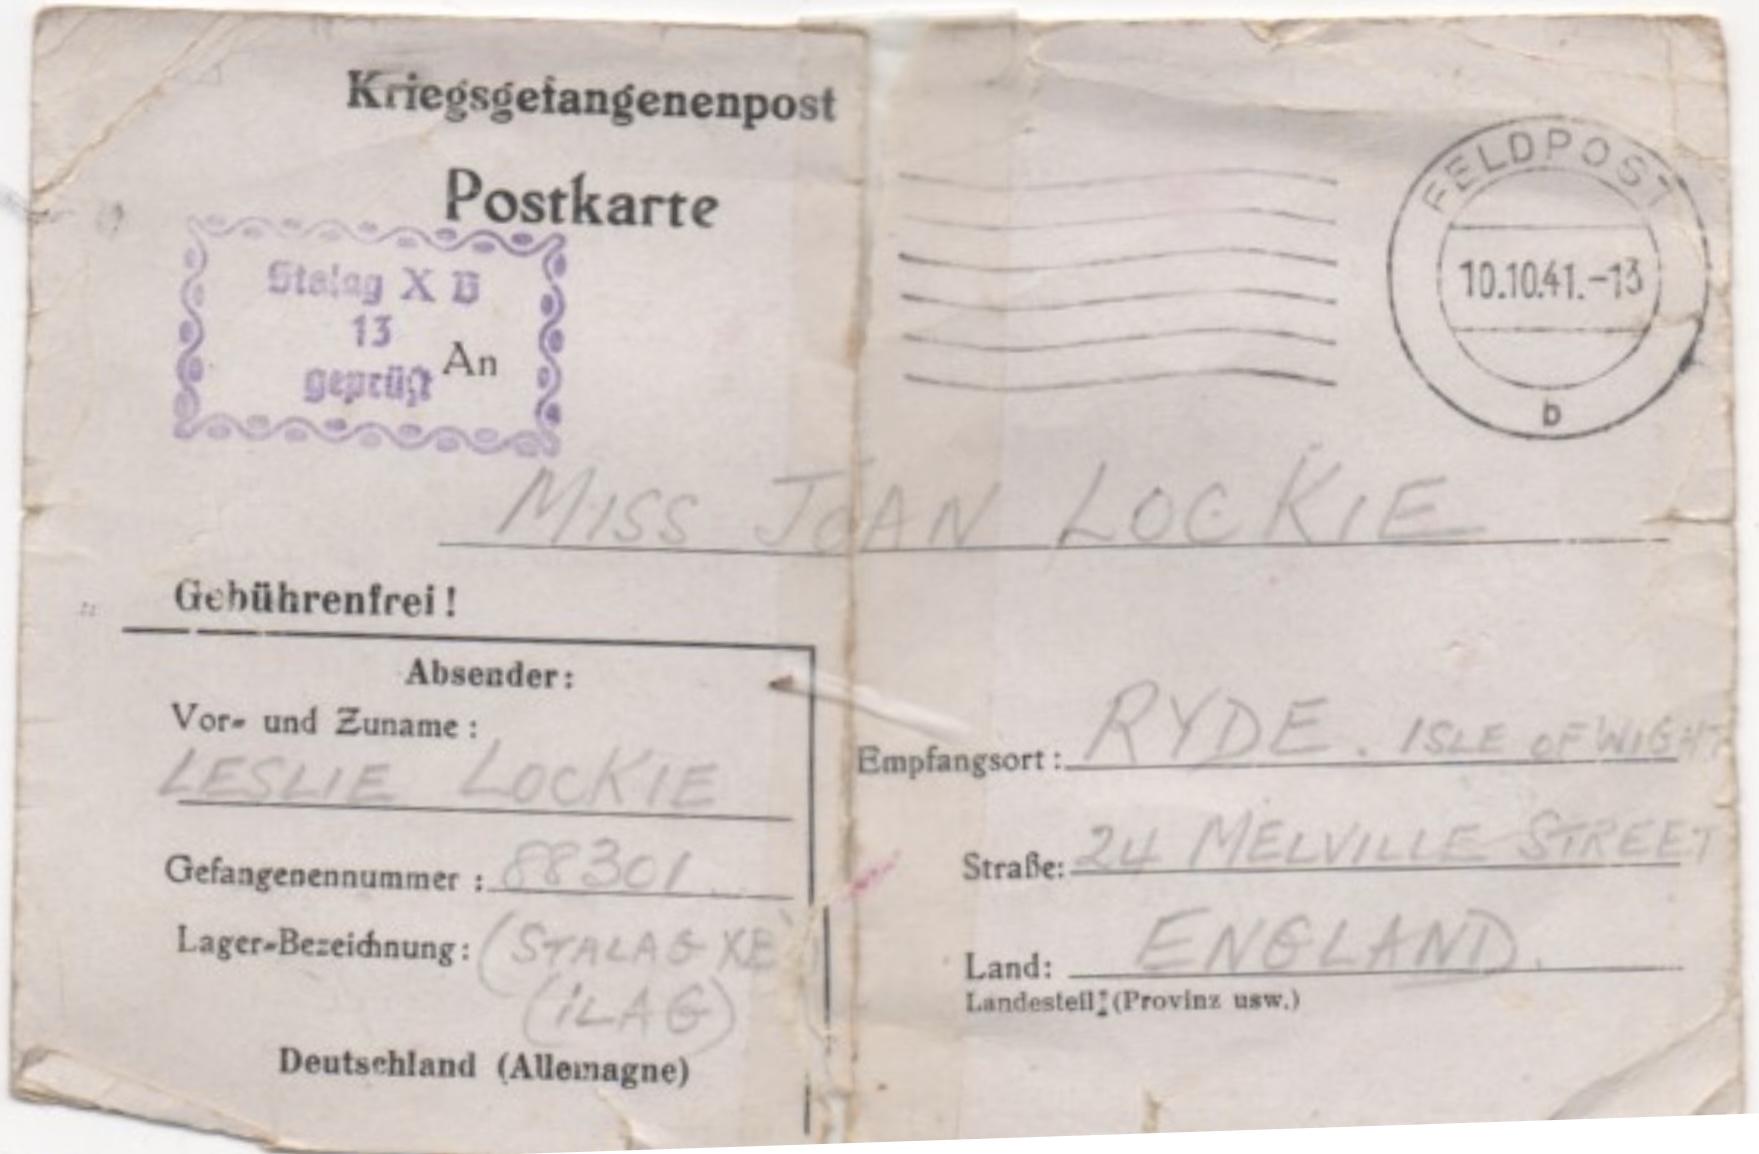 Kriegsgefangenenpost
Postkarte
FELDPOST
10.10.41.-13
b
Stalag X B
13
geprüft
An
MISS JOAN LOCKIE
Gebührenfrei!
Absender:
Vor- und Zuname:
LESLIE LOCKIE
Gefangenennummer: 88301
Lager-Bezeichnung: (STALAG XB)
(ILAG)
Deutschland (Allemagne)
Empfangsort: RYDE. ISLE OF WIGHT
Straße: 24 MELVILLE STREET
Land: ENGLAND.
Landesteil: (Provinz usw.)